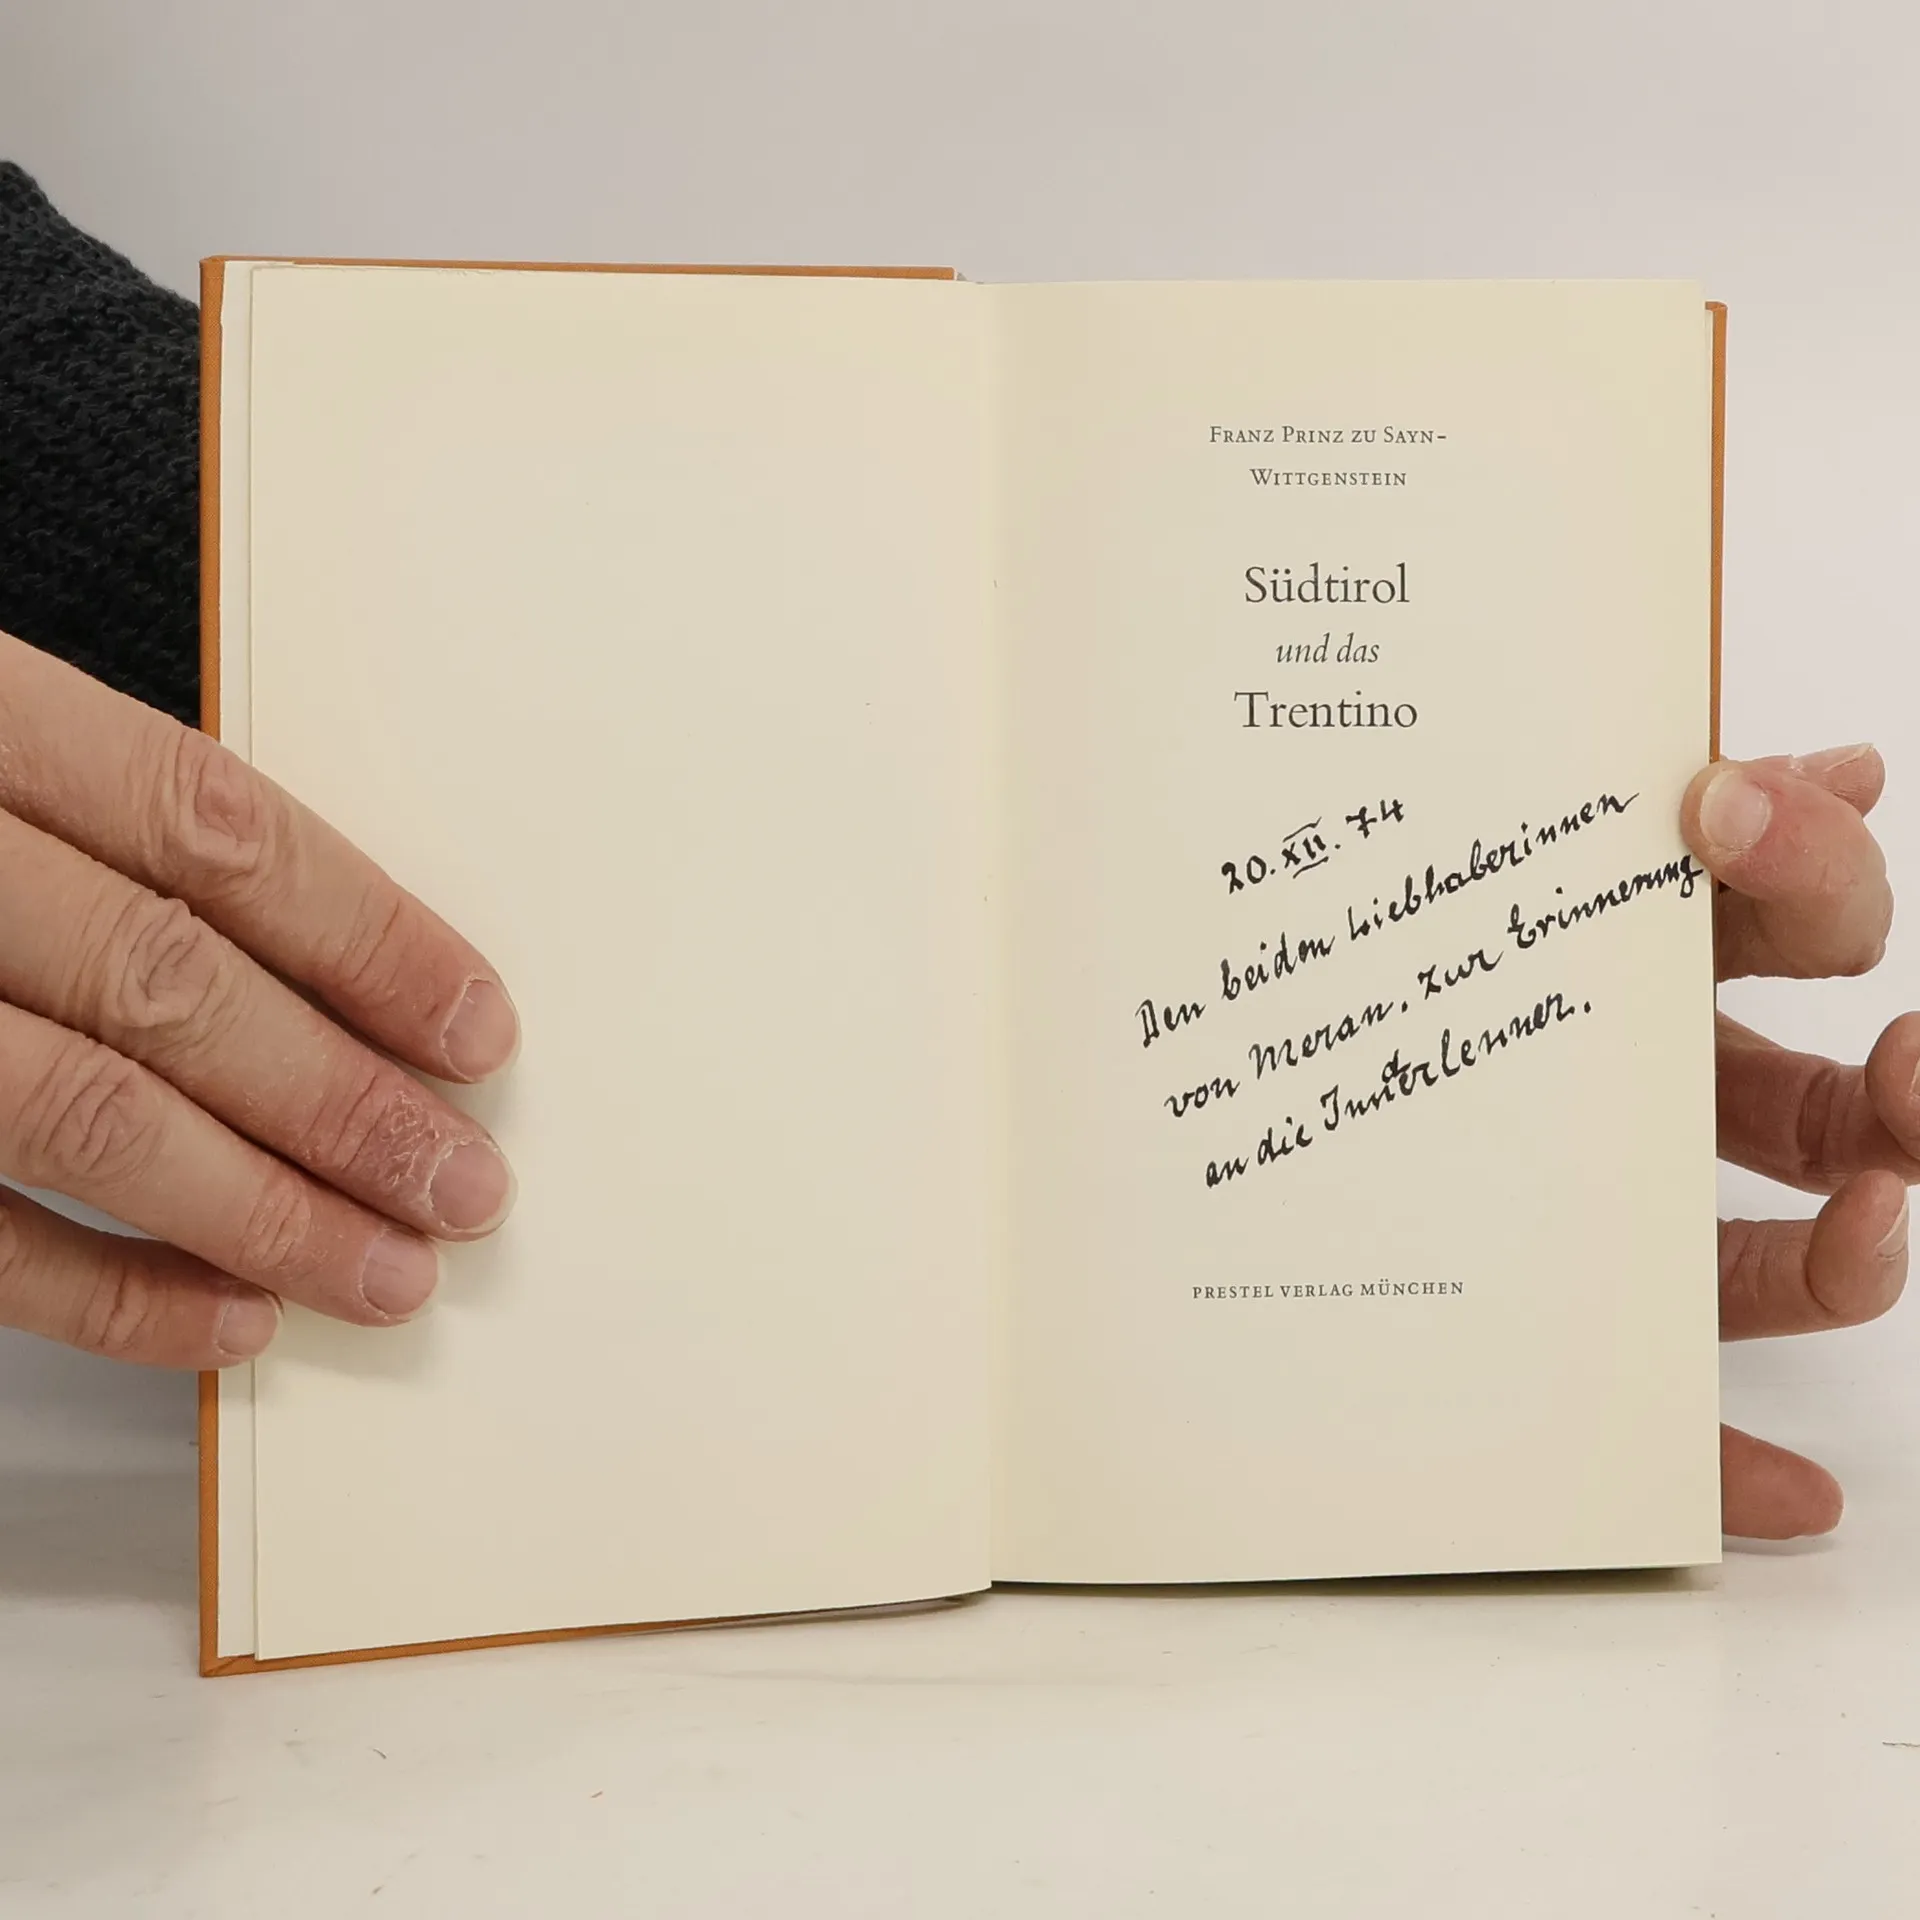 FRANZ PRINZ ZU SAYN-
WITTGENSTEIN
Südtirol
und das
Trentino
20. XII. 74
Den beiden Liebhaberinnen
von Meran. Zur Erinnerung
an die
PRESTEL VERLAG MÜNCHEN